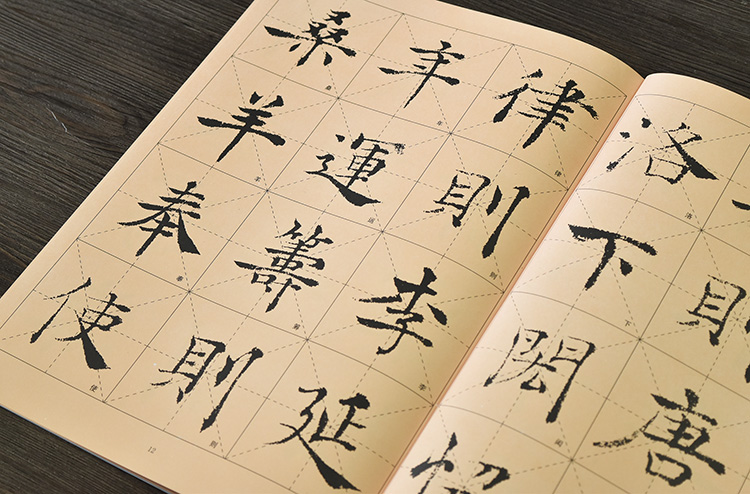 則唐
洛下閎
律則李延
年運籌則
桑羊奉使
12